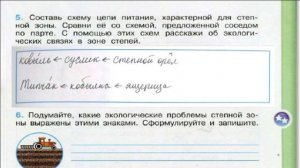 5. Составь схему цепи питания, характерной для степ-
ной зоны. Сравни её со схемой, предложенной соседом
по парте. С помощью этих схем расскажи об экологи-
ческих связях в зоне степей.
ковыль ← суслик ← степной орёл
Типчак ← кобылка ← ящерица
6. Подумайте, какие экологические проблемы степной зо-
ны выражены этими знаками. Сформулируйте и запишите.